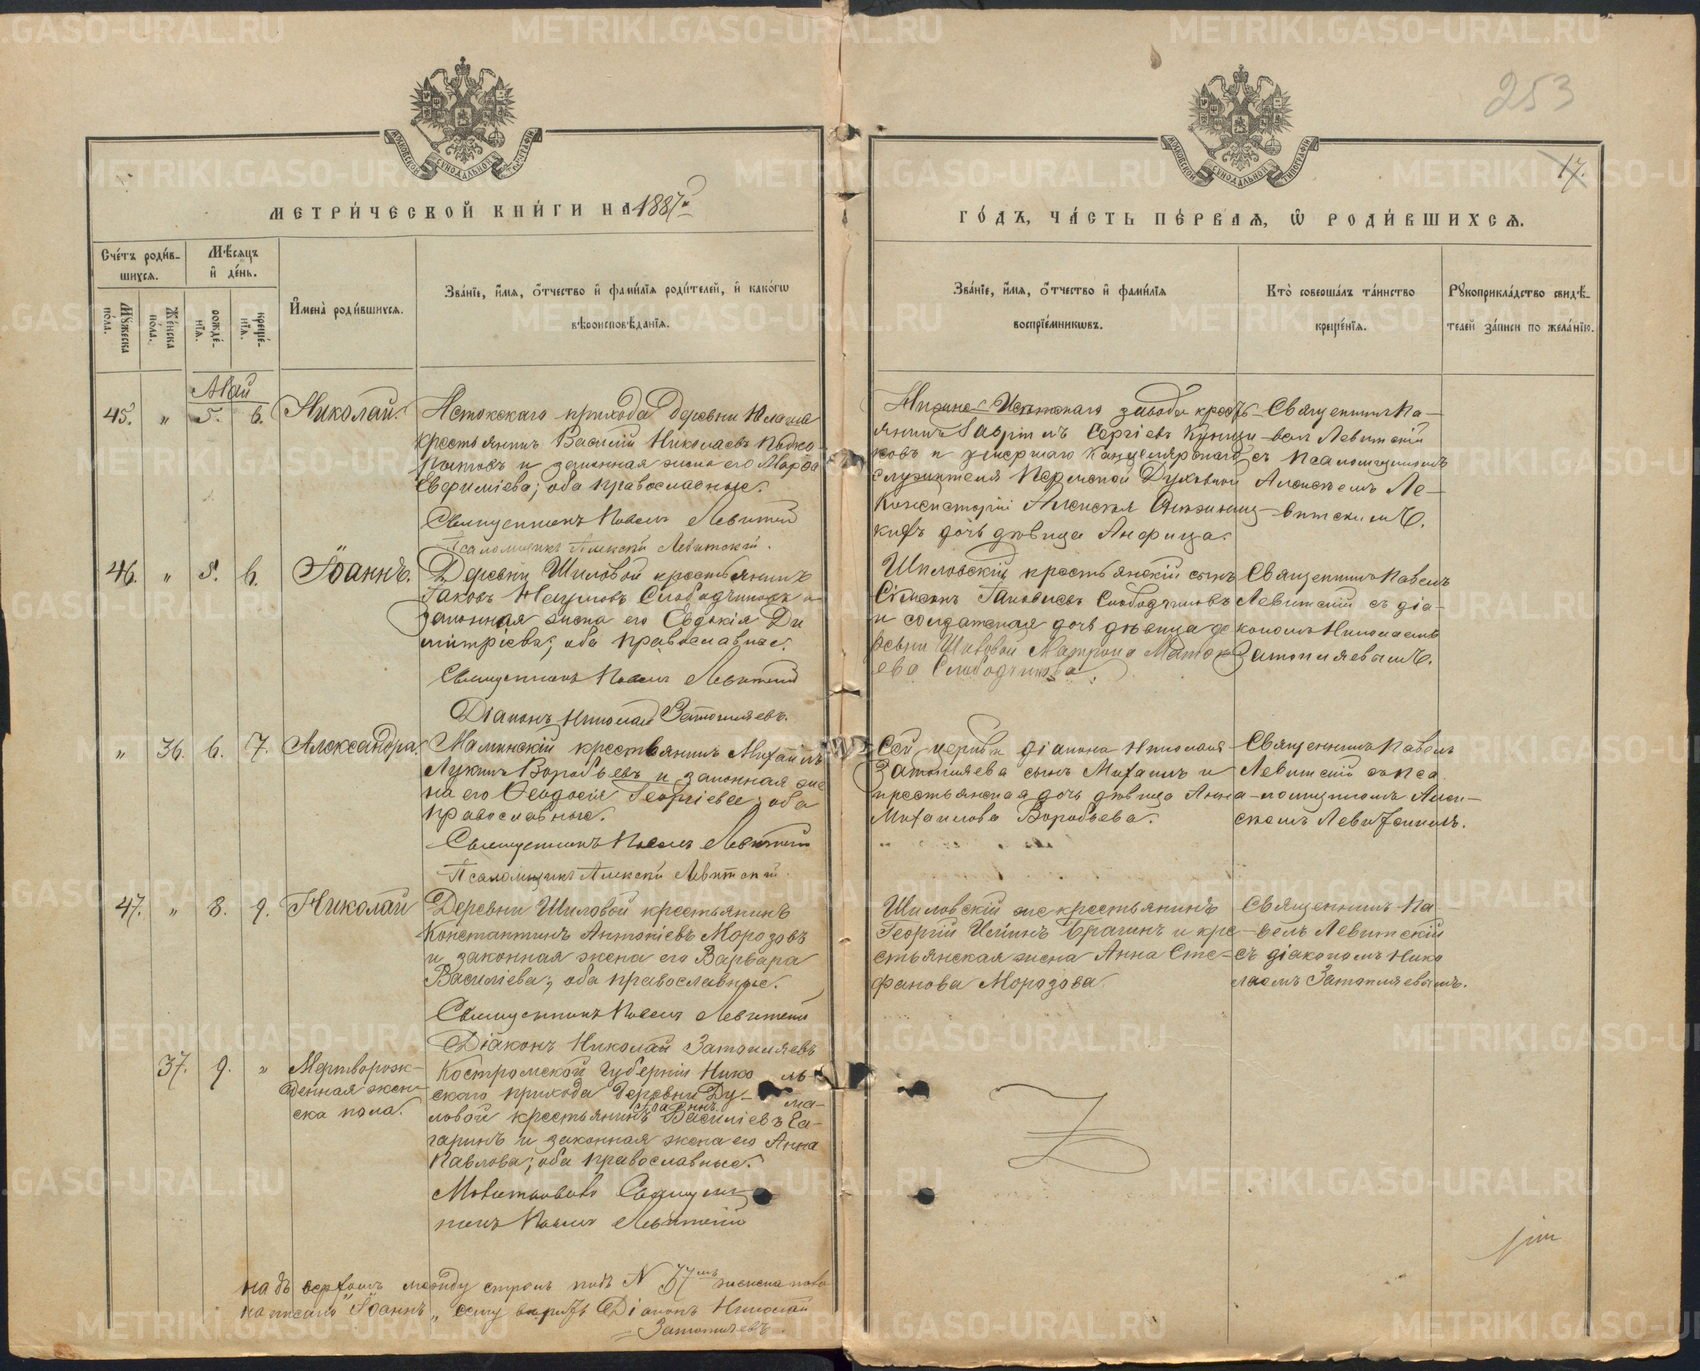 253
17.
МЕТРИ́ЧЕСКОЙ КНИ́ГИ НА 1887й
ГО́ДЪ, ЧА́СТЬ ПЕ́РВАЯ, Ѡ РОДИ́ВШИХСЯ.
Сче́тъ роди́в-
шихся.
Мѣ́сяцъ
и де́нь.
Му́жеска по́ла.
Же́нска по́ла.
рожде́-
нїя.
креще́-
нїя.
Имена̀ роди́вшихся.
Зва́нїе, и́мя, о́тчество и фами́лїя роди́телей, и како́гѡ
вѣроисповѣ́данїя.
Зва́нїе, и́мя, о́тчество и фами́лїя
воспрїе́мникѡвъ.
Кто̀ соверша́лъ та́инство
креще́нїя.
Рꙋкоприкла́дство свидѣ́-
телей за́писи по жела́нїю.
Май
45. " 5. 6. Николай.
Истокскаго прихода деревни
крестьянинъ Василій Николаевъ
и законная жена его Марѳа
Евфиміева; оба православные.
Священникъ Павелъ Левитскій
Псаломщикъ Алексій Левитскій.
Нижне-Исетскаго завода кресть-
янинъ Гавріилъ Сергіевъ
ковъ и умершаго Канцелярскаго
служителя Пермской Духовной
Консисторіи Алексія
дочь дѣвица Анфиса.
Священникъ Па-
велъ Левитскій
съ псаломщикомъ
Алексѣемъ Ле-
витскимъ.
46. " 5. 6. Іоаннъ.
Деревни Шиловой крестьянинъ
Іаковъ Наумовъ Слободчиковъ и
законная жена его Евдокія Ди
митріева; оба православные.
Священникъ Павелъ Левитскій
Діаконъ Николай Затопляевъ.
Шиловскій крестьянскій сынъ
Сѵмеонъ Іаковлевъ Слободчиковъ
и солдатская дочь дѣвица де
ревни Шиловой Матрона
ева Слободчикова.
Священникъ Павелъ
Левитскій съ діа-
кономъ Николаемъ
Затопляевымъ.
" 36. 6. 7. Александра.
Маминскій крестьянинъ Михаилъ
Лукинъ Воробьевъ и законная же
на его Ѳеодосія Георгіева; оба
православные.
Священникъ Павелъ Левитскій
Псаломщикъ Алексій Левитскій.
Сей церкви діакона Николая
Затопляева сынъ Михаилъ и
крестьянская дочь дѣвица Анна
Михаилова Воробьева.
Священникъ Павелъ
Левитскій съ пса
ломщикомъ Алек-
сѣемъ Левитскимъ.
47. " 8. 9. Николай
Деревни Шиловой крестьянинъ
Константинъ Антоніевъ Морозовъ
и законная жена его Варвара
Василіева; оба православные.
Священникъ Павелъ Левитскій
Діаконъ Николай Затопляевъ
Шиловскій же крестьянинъ
Георгій Брагинъ и кре-
стьянская жена Анна Сте-
фанова Морозова.
Священникъ Па
велъ Левитскій
съ діакономъ Нико
лаемъ Затопляевымъ.
37. 9. " Мертворож-
денная жен-
ска пола.
Костромской губерніи Нико ль-
скаго прихода деревни Ду- ма-
Іоаннъ
ловой крестьянинъ Василіевъ Га-
гаринъ и законная жена его Анна
Павлова; оба православные.
Священ
никъ Павелъ Левитскій
надъ верхомъ между строкъ подъ N 37мъ женска пола
написано "Іоаннъ", сему Діаконъ Николай
Затопляевъ.